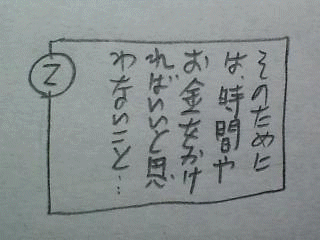 ②
そのために
は、時間や
お金をかけ
ればいいと思
わないこと…